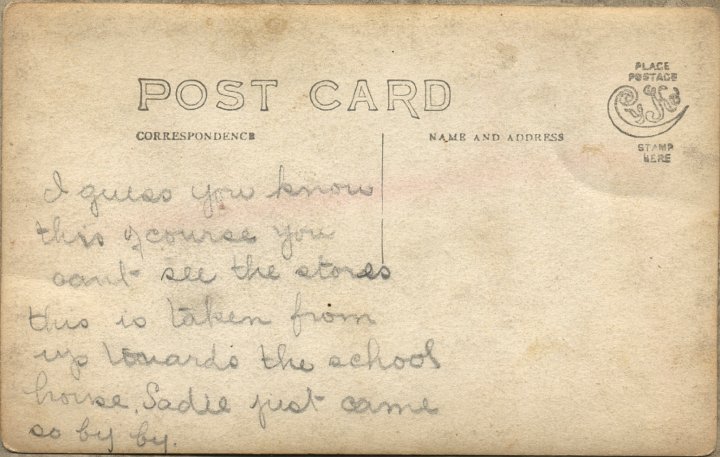 PLACE
POSTAGE
POST CARD
STAMP
HERE
CORRESPONDENCE
NAME AND ADDRESS
I guess you know
this of course you
cant see the stores
this is taken from
up towards the school
house. Sadie just came
so by by.